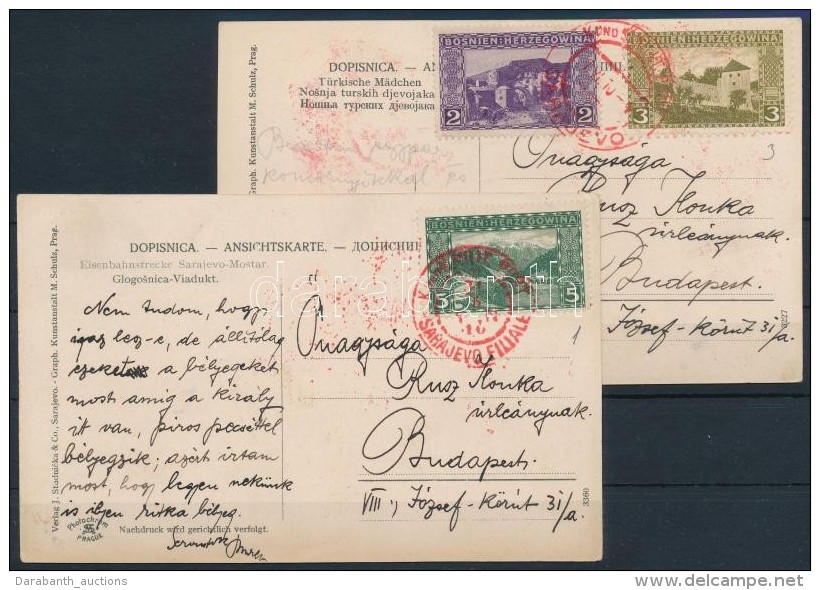 BOSNIEN-HERZEGOWINA
BOSNIEN-HERZEGOWINA
2
2
3
3
DOPISNICA. — AN
Türkische Mädchen
Nošnja turskih djevojaka
Ношња турских дјевојака
Graph. Kunstanstalt M. Schulz, Prag.
3
Őnagysága
Rusz Ilonka
úrleánynak.
Budapest.
József-Körút 31/a.
DOPISNICA. — ANSICHTSKARTE. — ДОПИСНИ
Eisenbahnstrecke Sarajevo-Mostar.
Glogošnica-Viadukt.
BOSNIEN-HERZEGOWINA
5
5
SARAJEVO FILIALE
Nem tudom, hogy
igaz lesz-e, de állítólag
ezeket a bélyegeket
most amíg a király
itt van, piros pecséttel
bélyegzik; azért írtam
most, hogy legyen nekünk
is ilyen ritka bélyeg.
Őnagysága
Rusz Ilonka
úrleánynak.
Budapest.
VIII., József-Körút 31/a.
1
Verlag J. Studnička & Co., Sarajevo. - Graph. Kunstanstalt M. Schulz, Prag.
Photochrom
PRAGUE
Nachdruck wird gerichtlich verfolgt.
3360
darabanth
Darabanth_auctions
delcampe.net